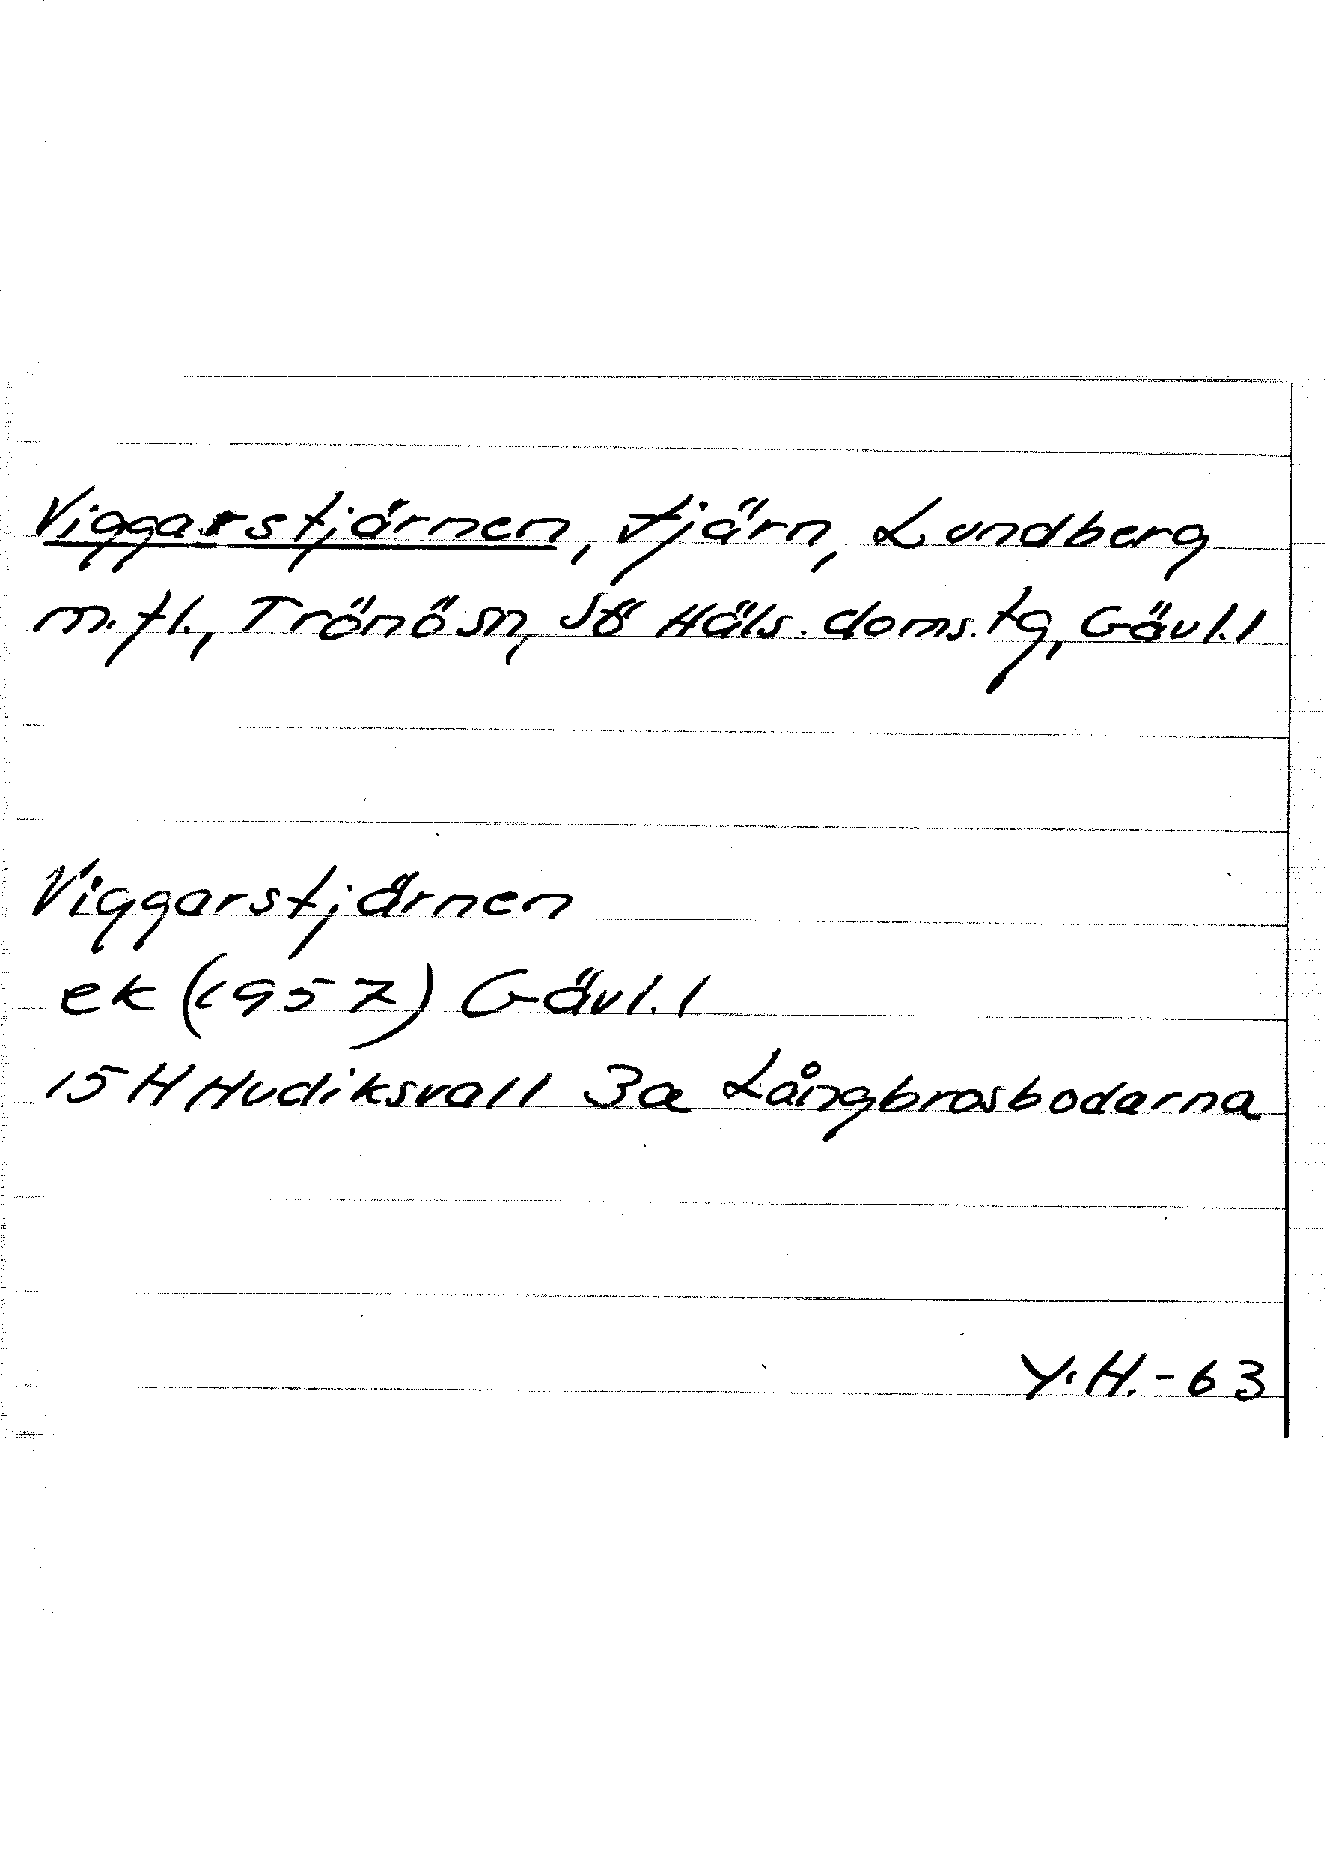 Viggarstjärnen, tjärn, Lundberg
m.fl., Trönö sn, Sö Häls. doms.tg, Gävl.l
Viggarstjärnen
ek (1957) Gävl.l
15 H Hudiksvall 3a Långbrosbodarna
Y.H.-63